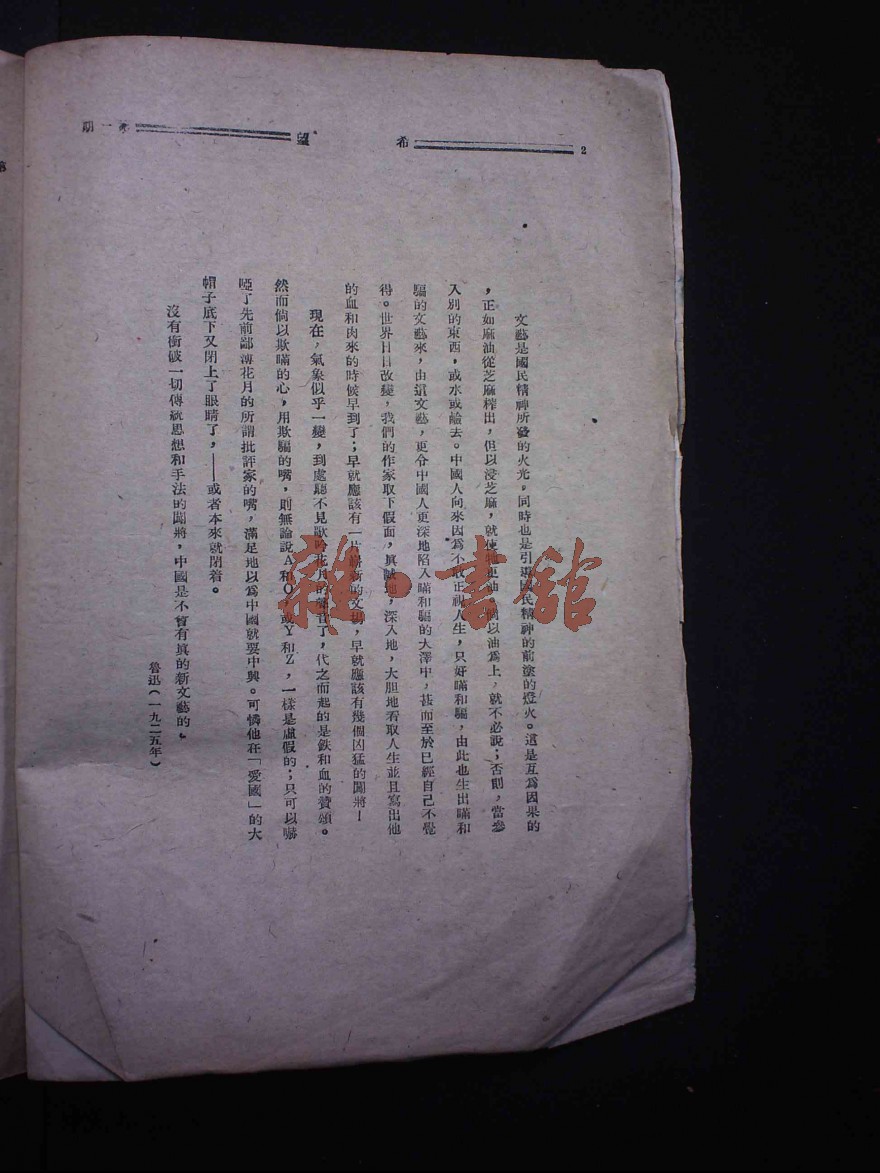 2
希望
第一期
文藝是國民精神所發的火光。同時也是引導國民精神的前塗的燈火。這是互爲因果的
,正如麻油從芝麻榨出,但以浸芝麻,就使牠更油。倘以油爲上,就不必說;否則,當參
入別的東西,或水或鹼去。中國人向來因爲不敢正視人生,只好瞞和騙,由此也生出瞞和
騙的文藝來,由這文藝,更令中國人更深地陷入瞞和騙的大澤中,甚而至於已經自己不覺
得。世界日日改變,我們的作家取下假面,眞誠地,深入地,大胆地看取人生並且寫出他
的血和肉來的時候早到了;早就應該有一片嶄新的文場,早就應該有幾個凶猛的闖將!
現在,氣象似乎一變,到處聽不見歌吟花月的聲音了,代之而起的是鉄和血的贊頌。
然而倘以欺瞞的心,用欺騙的嘴,則無論說A和O,或Y和Z,一樣是虛假的;只可以嚇
啞了先前鄙薄花月的所謂批評家的嘴,滿足地以爲中國就要中興。可憐他在「愛國」的大
帽子底下又閉上了眼睛了,——或者本來就閉着。
沒有衝破一切傳統思想和手法的闖將,中國是不會有眞的新文藝的。
魯迅(一九二五年)
雜·書館